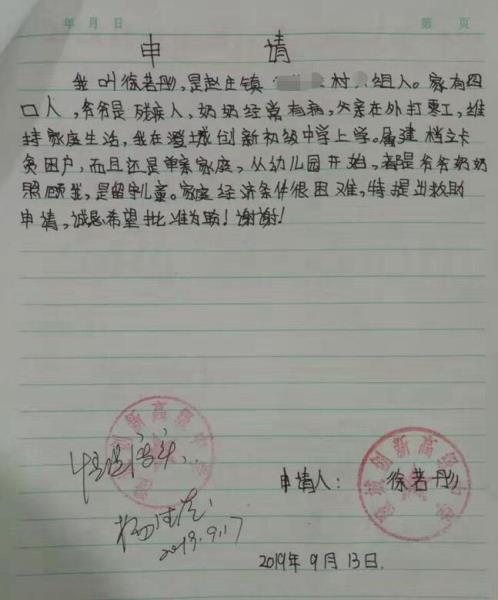 年 月 日 第 页
申 请
我叫徐若彤,是赵庄镇 村 组人。家有四
口人,爷爷是残疾人,奶奶经常有病,父亲在外打零工,维
持家庭生活,我在澄城创新初级中学上学。属建档立卡
贫困户,而且还是单亲家庭,从幼儿园开始,都是爷爷奶奶
照顾我,是留守儿童。家庭经济条件很困难,特提出救助
申请,诚恳希望批准为盼!谢谢!
情况属实
创新高级中学
申请人:徐若彤
澄城创新高级中学
2019.9.17
2019年9月13日.